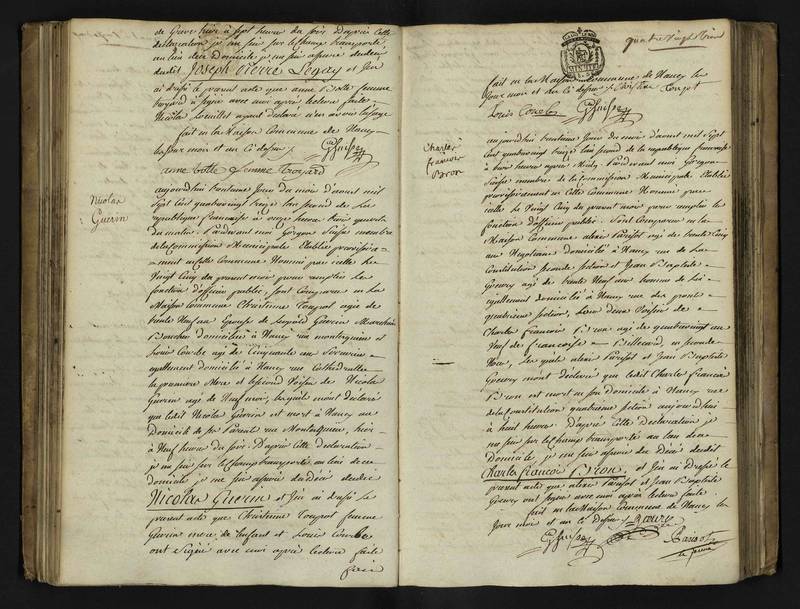 de hier à Sept heures du Soir D'après Cette
declaration je me suis Sur le Champ transporté
au lieu dudit Domicile je me suis assuré du deces
dudit Joseph Pierre Legay et J'en
ai dressé le present acte que anne Botte femme
Troyard a Signé avec moi après lecture faite
Nicolas ayant declaré n'en avoir l'usage
fait en la Maison Commune de Nancy
les jour mois et an Ci dessus
anne botte femme troyard
Nicolas
Guerin
aujourd'huy trentieme Jour du mois d'aout mil
Sept Cent quatre vingt treize l'an second de la
republique francaise à onze heures trois quarts
du matin. Pardevant moi Grégoire Suisse membre
de la Commission Municipale Etablie provisoire-
-ment en Cette Commune Nommé par icelle le
Vingt Cinq du present mois pour remplir les
fonctions d'officier public, Sont comparus en la
Maison Commune Christinne Toupot agée de
trente Neuf ans Epouse de Leopold Guerin Marchand
Boucher domiciliée à Nancy rue montesquieu et
Louis Courbe agé de Cinquante ans Serrurier
egallement domicilié à Nancy rue Cathedralle
la premiere Mere et le Second Voisin de Nicolas
Guerin agé de Neuf mois, lesquels m'ont declaré
que ledit Nicolas Guerin est mort à Nancy au
Domicile de ses Parents rue Montesquieu, hier
à Neuf heures du Soir. D'après Cette declaration
je me suis Sur le Champ transporté au lieu de ce
domicile je me suis assuré du Décès dudit
Nicolas Guerin et J'en ai dressé le
present acte que Christinne Toupot femme
Guerin mere de l'enfant et Louis Courbe
ont Signé avec moi après lecture faite
fait
quatre Vingt Trois
fait en la Maison Commune de Nancy les
Jour mois et an Ci dessus. Christine Toupot
Charles
francois
Bron
aujourd'huy trentieme Jour du mois d'aout mil Sept
Cent quatre vingt treize l'an second de la republique francaise
à heures après Midy Pardevant moi Grégoire
Suisse membre de la Commission Municipale Etablie
provisoirement en Cette Commune Nommé par
icelle le Vingt Cinq du present mois pour remplir les
fonctions d'officier public. Sont Comparus en la
Maison Commune alexis Parisot agé de trente Cinq
ans Negotiant domicilié à Nancy rue de La
Constitution seconde Section et Jean Baptiste
Gouvry agé de trente Neuf ans homme de Loi
egallement domicilié à Nancy rue des ponts
quatrieme Section, Tous deux Voisins de
Charles francois Bron agé de quatre vingt un
Lesquels alexis Parisot et Jean Baptiste
Gouvry m'ont declaré que ledit Charles francois
Bron est mort en son domicile à Nancy rue
de la Constitution quatrieme Section aujourd'hui
à huit heures. D'après Cette Declaration je
me suis Sur le Champ transporté au lieu dudit
Domicile, je me suis assuré du Décès dudit
Charles francois Bron, et J'en ai Dressé le
present acte que alexis Parisot et Jean Baptiste
Gouvry ont Signé avec moi après lecture faite
fait en la Maison Commune de Nancy les
Jour mois et an Ci Dessus. Gouvry
Parisot
le jeune